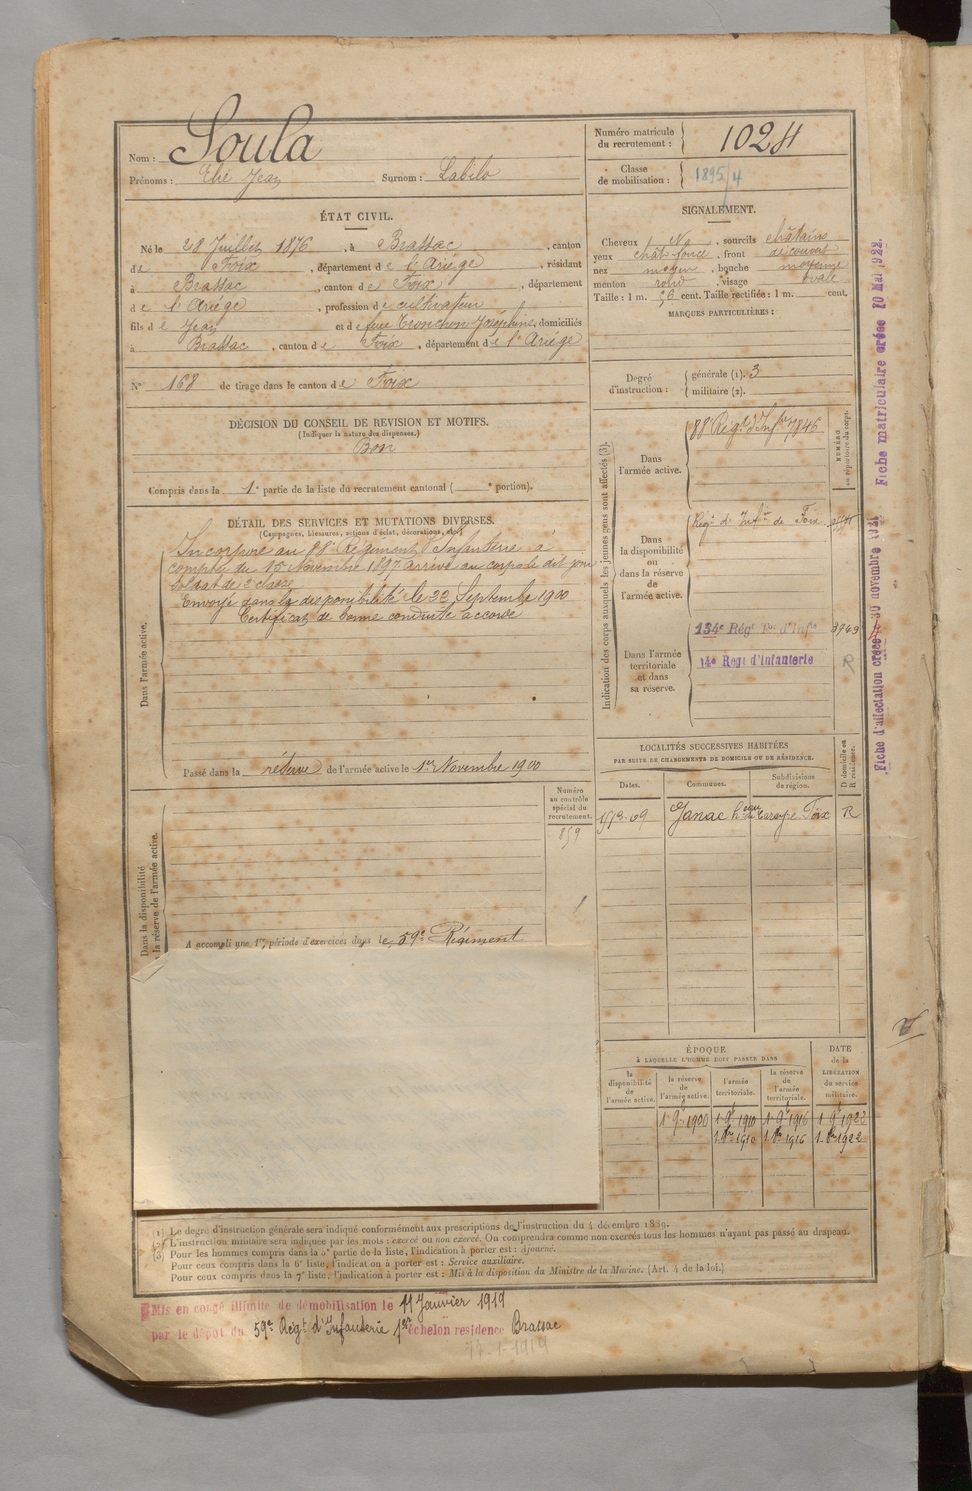 Nom : Soula
Prénoms : Elie Jean Surnom : Labilo
ÉTAT CIVIL.
Né le 28 Juillet 1876, à Brassac, canton
de Foix, département de l'Ariége, résidant
à Brassac, canton de Foix, département
de l'Ariége, profession de cultivateur
fils de Jean et de feue Tronchon Joséphine, domiciliés
à Brassac, canton de Foix, département de l'Ariége
N° 168 de tirage dans le canton de Foix
DÉCISION DU CONSEIL DE REVISION ET MOTIFS.
(Indiquer la nature des dispenses.)
Bon
Compris dans la 1e partie de la liste du recrutement cantonal ( e portion).
DÉTAIL DES SERVICES ET MUTATIONS DIVERSES.
(Campagnes, blessures, actions d'éclat, décorations, etc.)
Dans l'armée active.
Incorporé au 88e Régiment d'Infanterie à
compter du 15 Novembre 1897 arrivé au corps le dit jour
Soldat de 2e classe
Envoyé dans la disponibilité le 22 Septembre 1900
Certificat de bonne conduite accordé
Passé dans la réserve de l'armée active le 1er Novembre 1900
Dans la disponibilité
la réserve de l'armée active.
Numéro
au contrôle
spécial du
recrutement.
859
A accompli une 1re période d'exercices dans le 59e Régiment
Numéro matricule
du recrutement : 1024
Classe
de mobilisation : 1895/4
SIGNALEMENT.
Cheveux No, sourcils châtains
yeux chât foncé, front découvert
nez moyen, bouche moyenne
menton rond, visage ovale
Taille : 1 m. 56 cent. Taille rectifiée : 1 m. cent.
MARQUES PARTICULIÈRES :
Degré
d'instruction :
générale (1). 3
militaire (2).
Indication des corps auxquels les jeunes gens sont affectés (3).
NUMÉRO
au répertoire du corps.
Dans
l'armée active.
88e Régt d'Infie 7846
Dans
la disponibilité
ou
dans la réserve
de
l'armée active.
Régt d'Infie de Foix
Dans l'armée
territoriale
et dans
sa réserve.
134e Régt Ter d'Infie 3749
14e Regt d'Infanterie R
LOCALITÉS SUCCESSIVES HABITÉES
PAR SUITE DE CHANGEMENTS DE DOMICILE OU DE RÉSIDENCE.
Dates.
Communes.
Subdivisions
de région.
D domicile ou
R résidence.
Ganac Foix R
ÉPOQUE
À LAQUELLE L'HOMME DOIT PASSER DANS
DATE
de la
LIBÉRATION
du service
militaire.
la
disponibilité
de
l'armée active.
la réserve
de
l'armée active.
l'armée
territoriale.
la réserve
de
l'armée
territoriale.
1 9e 1900 1 9e 1910 1 9e 1916 1 9e 1922
1 8re 1910 1 8re 1916 1 8re 1922
(1) Le degré d'instruction générale sera indiqué conformément aux prescriptions de l'instruction du 4 décembre 1889.
(2) L'instruction militaire sera indiquée par les mots : exercé ou non exercé. On comprendra comme non exercés tous les hommes n'ayant pas passé au drapeau.
(3) Pour les hommes compris dans la 5e partie de la liste, l'indication à porter est : Ajourné.
Pour ceux compris dans la 6e liste, l'indication à porter est : Service auxiliaire.
Pour ceux compris dans la 7e liste, l'indication à porter est : Mis à la disposition du Ministre de la Marine. (Art. 4 de la loi.)
Mis en congé illimité de démobilisation le 11 Janvier 1919
par le dépôt du 59e Régt d'Infanterie 1er échelon résidence Brassac
17-1-1919
Fiche d'affectation créée 30 novembre 1921
Fiche matriculaire créée 10 Mai 1922.